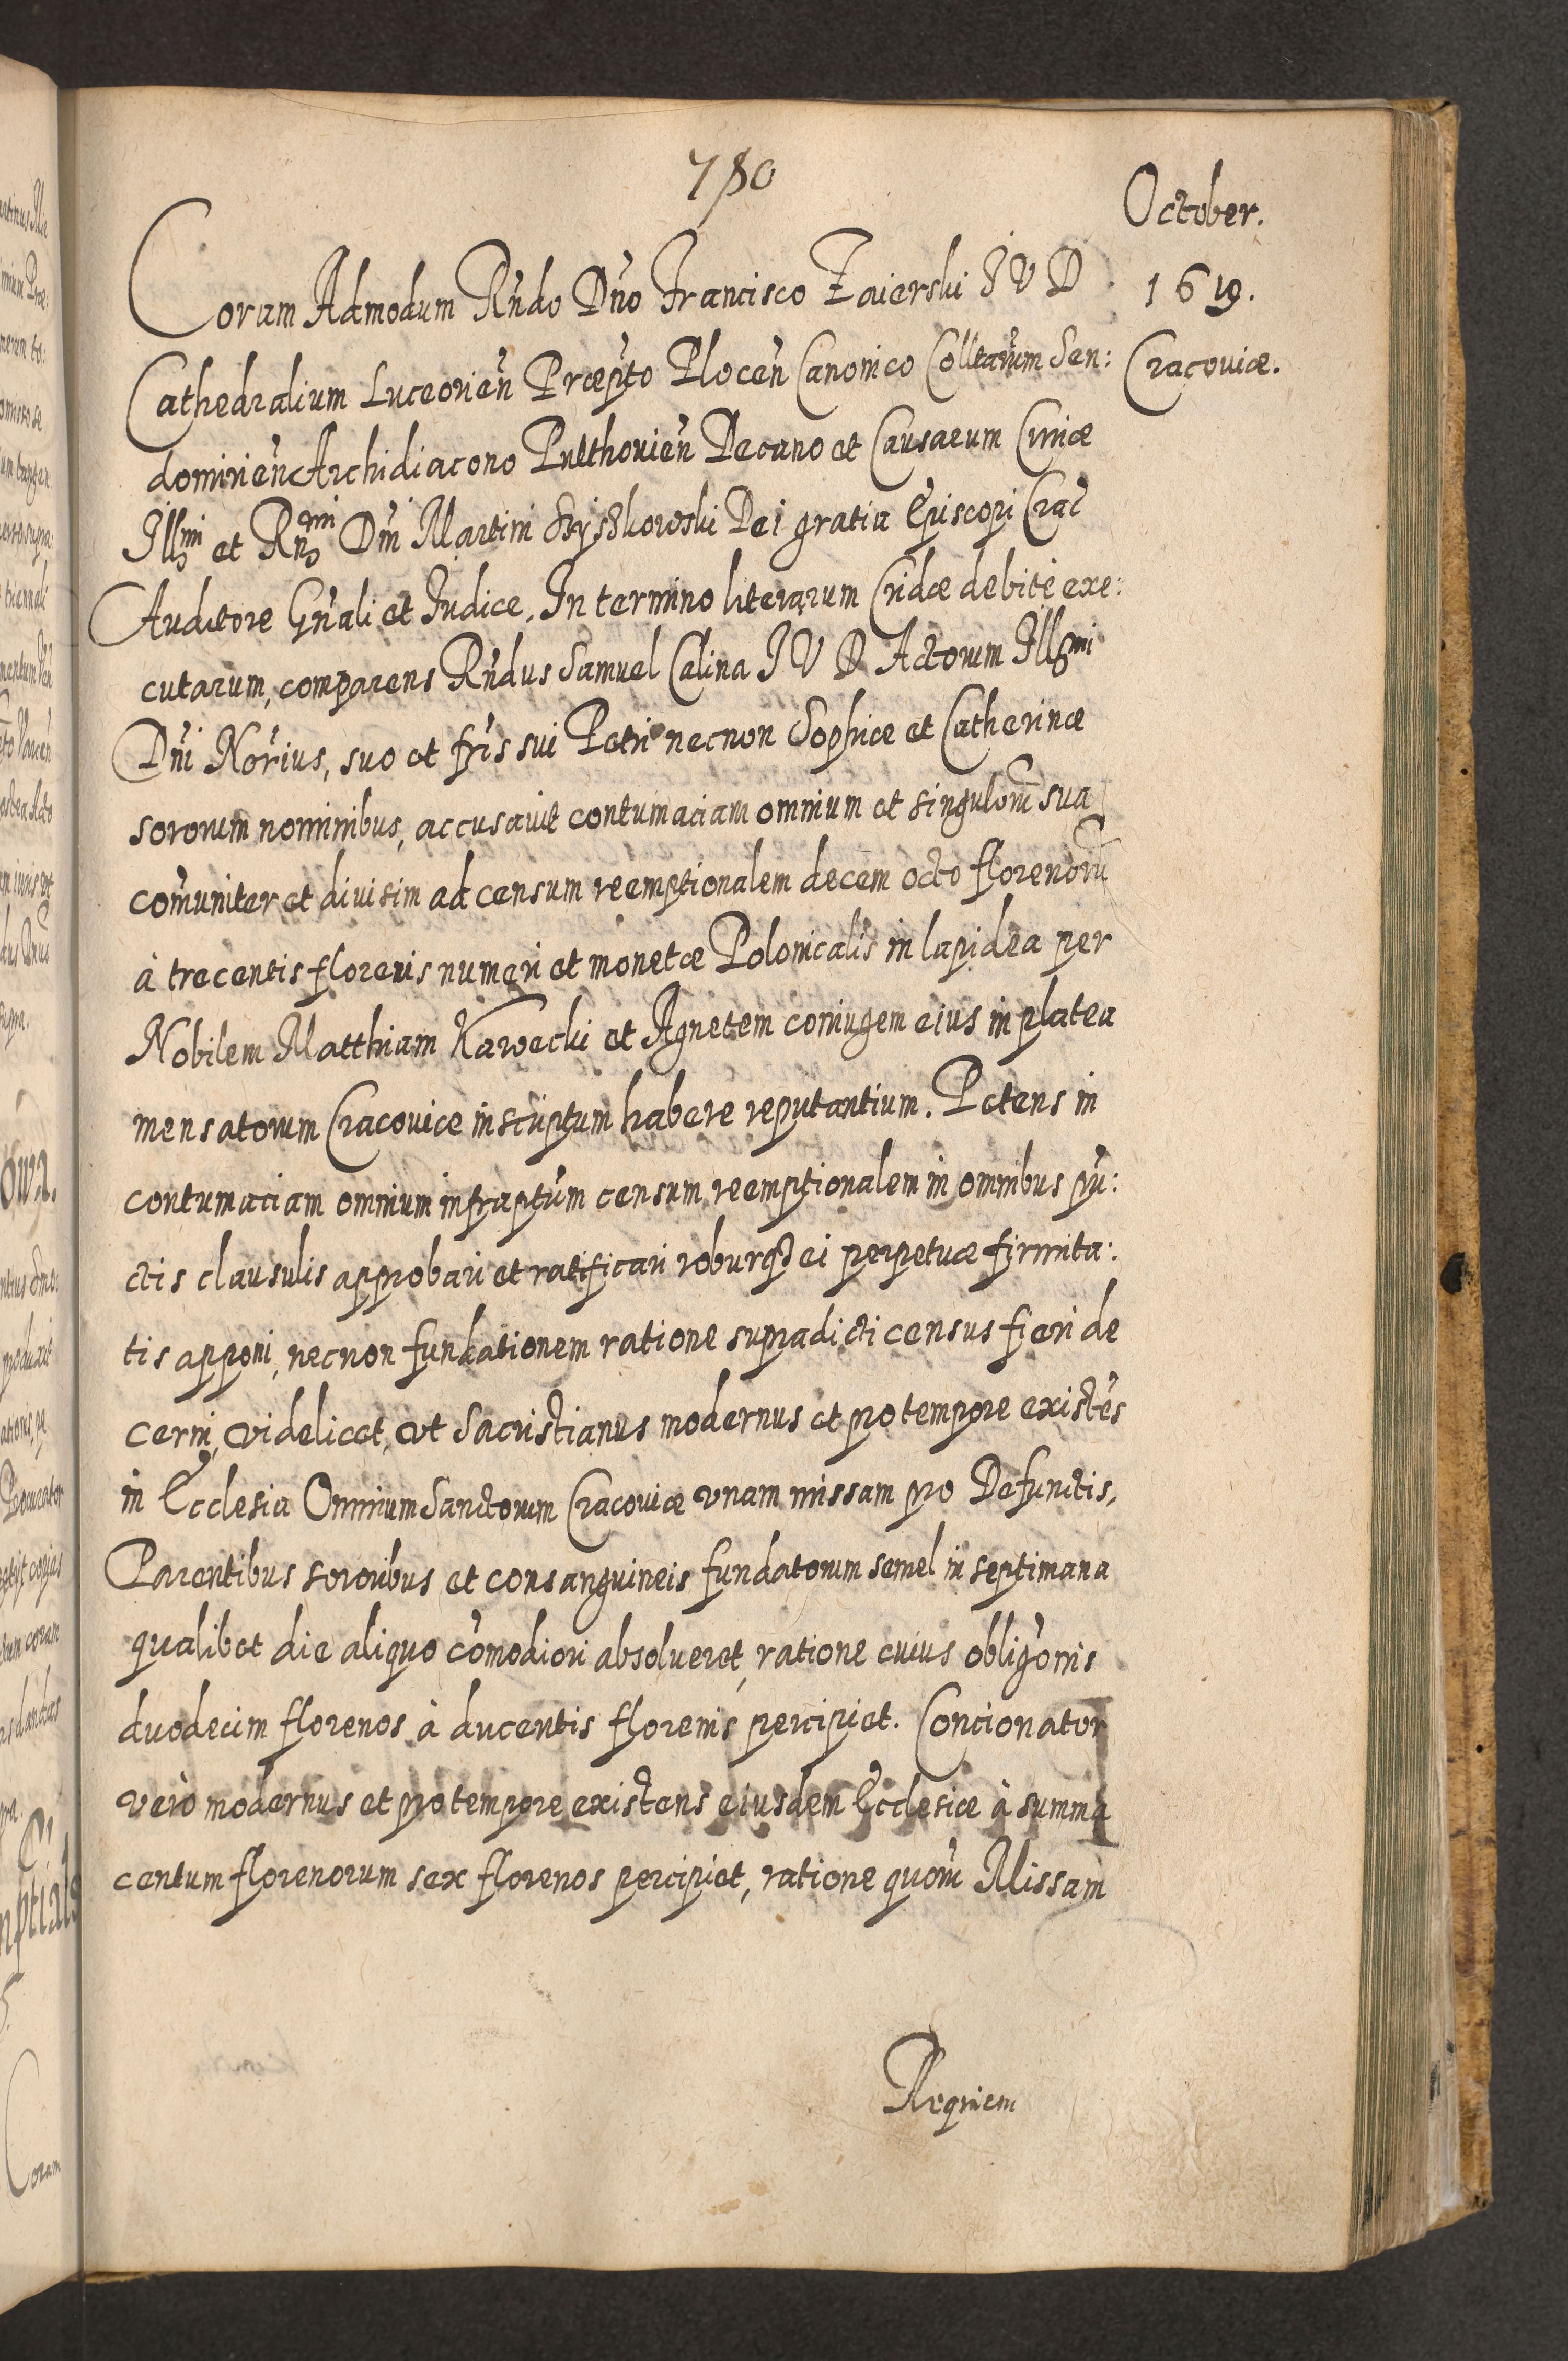 780
October.
1619.
Cracoviæ.
Coram Admodum Rńdo Dńo Francisco Zaierski I V D
Cathedralium Luceorień Præpto Ploceń Canonico Colltarum San:
domirień Archidiacono Pulthovień Decano et Causarum Curiæ
Illmi et Rndmi Dńi Martini Szyszkowski Dei gratia Episcopi Crac
Auditore Gńali et Iudice, In termino literarum Cridæ debitè exe:
cutarum, comparens Rńdus Samuel Calina I V D Actorum Illmi
Dńi Nórius, suo et fris sui Petri necnon Sophiæ et Catherinæ
sororum nominibus, accusavit contumaciam omnium et singulorū sua
cōmuniter et divisim ad censum reemptionalem decem octo florenorū
à trecentis florenis numeri et monetæ Polonicalis in lapidea per
Nobilem Matthiam Kawecki et Agnetem coniugem eius in platea
mensatorum Cracoviæ inscriptum habere reputantium. Petens in
contumaciam omnium infraptum censum reemptionalem in omnibus pū:
ctis clausulis approbari et ratificari roburq3 ei perpetuæ firmita:
tis apponi, necnon fundationem ratione supradicti census fieri de
cerni, videlicet, vt Sacristianus modernus et pro tempore existēs
in Ecclesia Omnium Sanctorum Cracoviæ vnam missam pro Defunctis,
Parentibus sororibus et consanguineis fundatorum semel in septimana
qualibet die aliquo cōmodiori absolueret, ratione cuius obligōnis
duodecim florenos à ducentis florenis percipiet. Concionator
verò modernus et pro tempore existens eiusdem Ecclesiæ à summa
centum florenorum sex florenos percipiet, ratione quorū Missam
Requiem